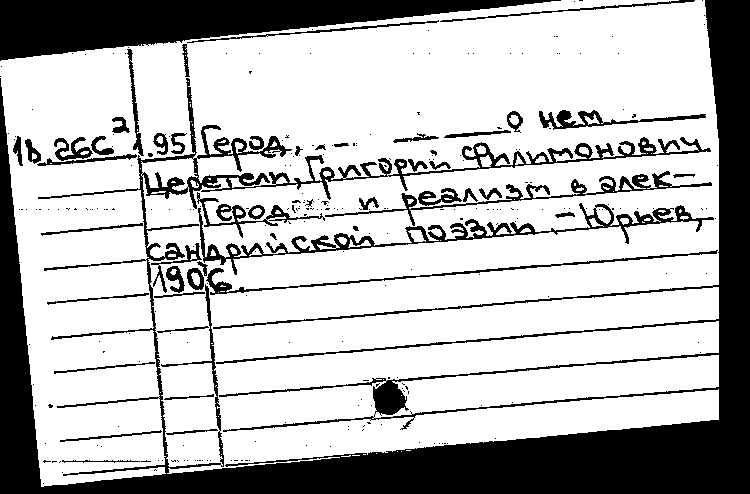 18.266² 1.95 Герод, — — о нем
Церетели, Григорий Филимонович.
Герод и реализм в алек-
сандрийской поэзии. - Юрьев,
1906.